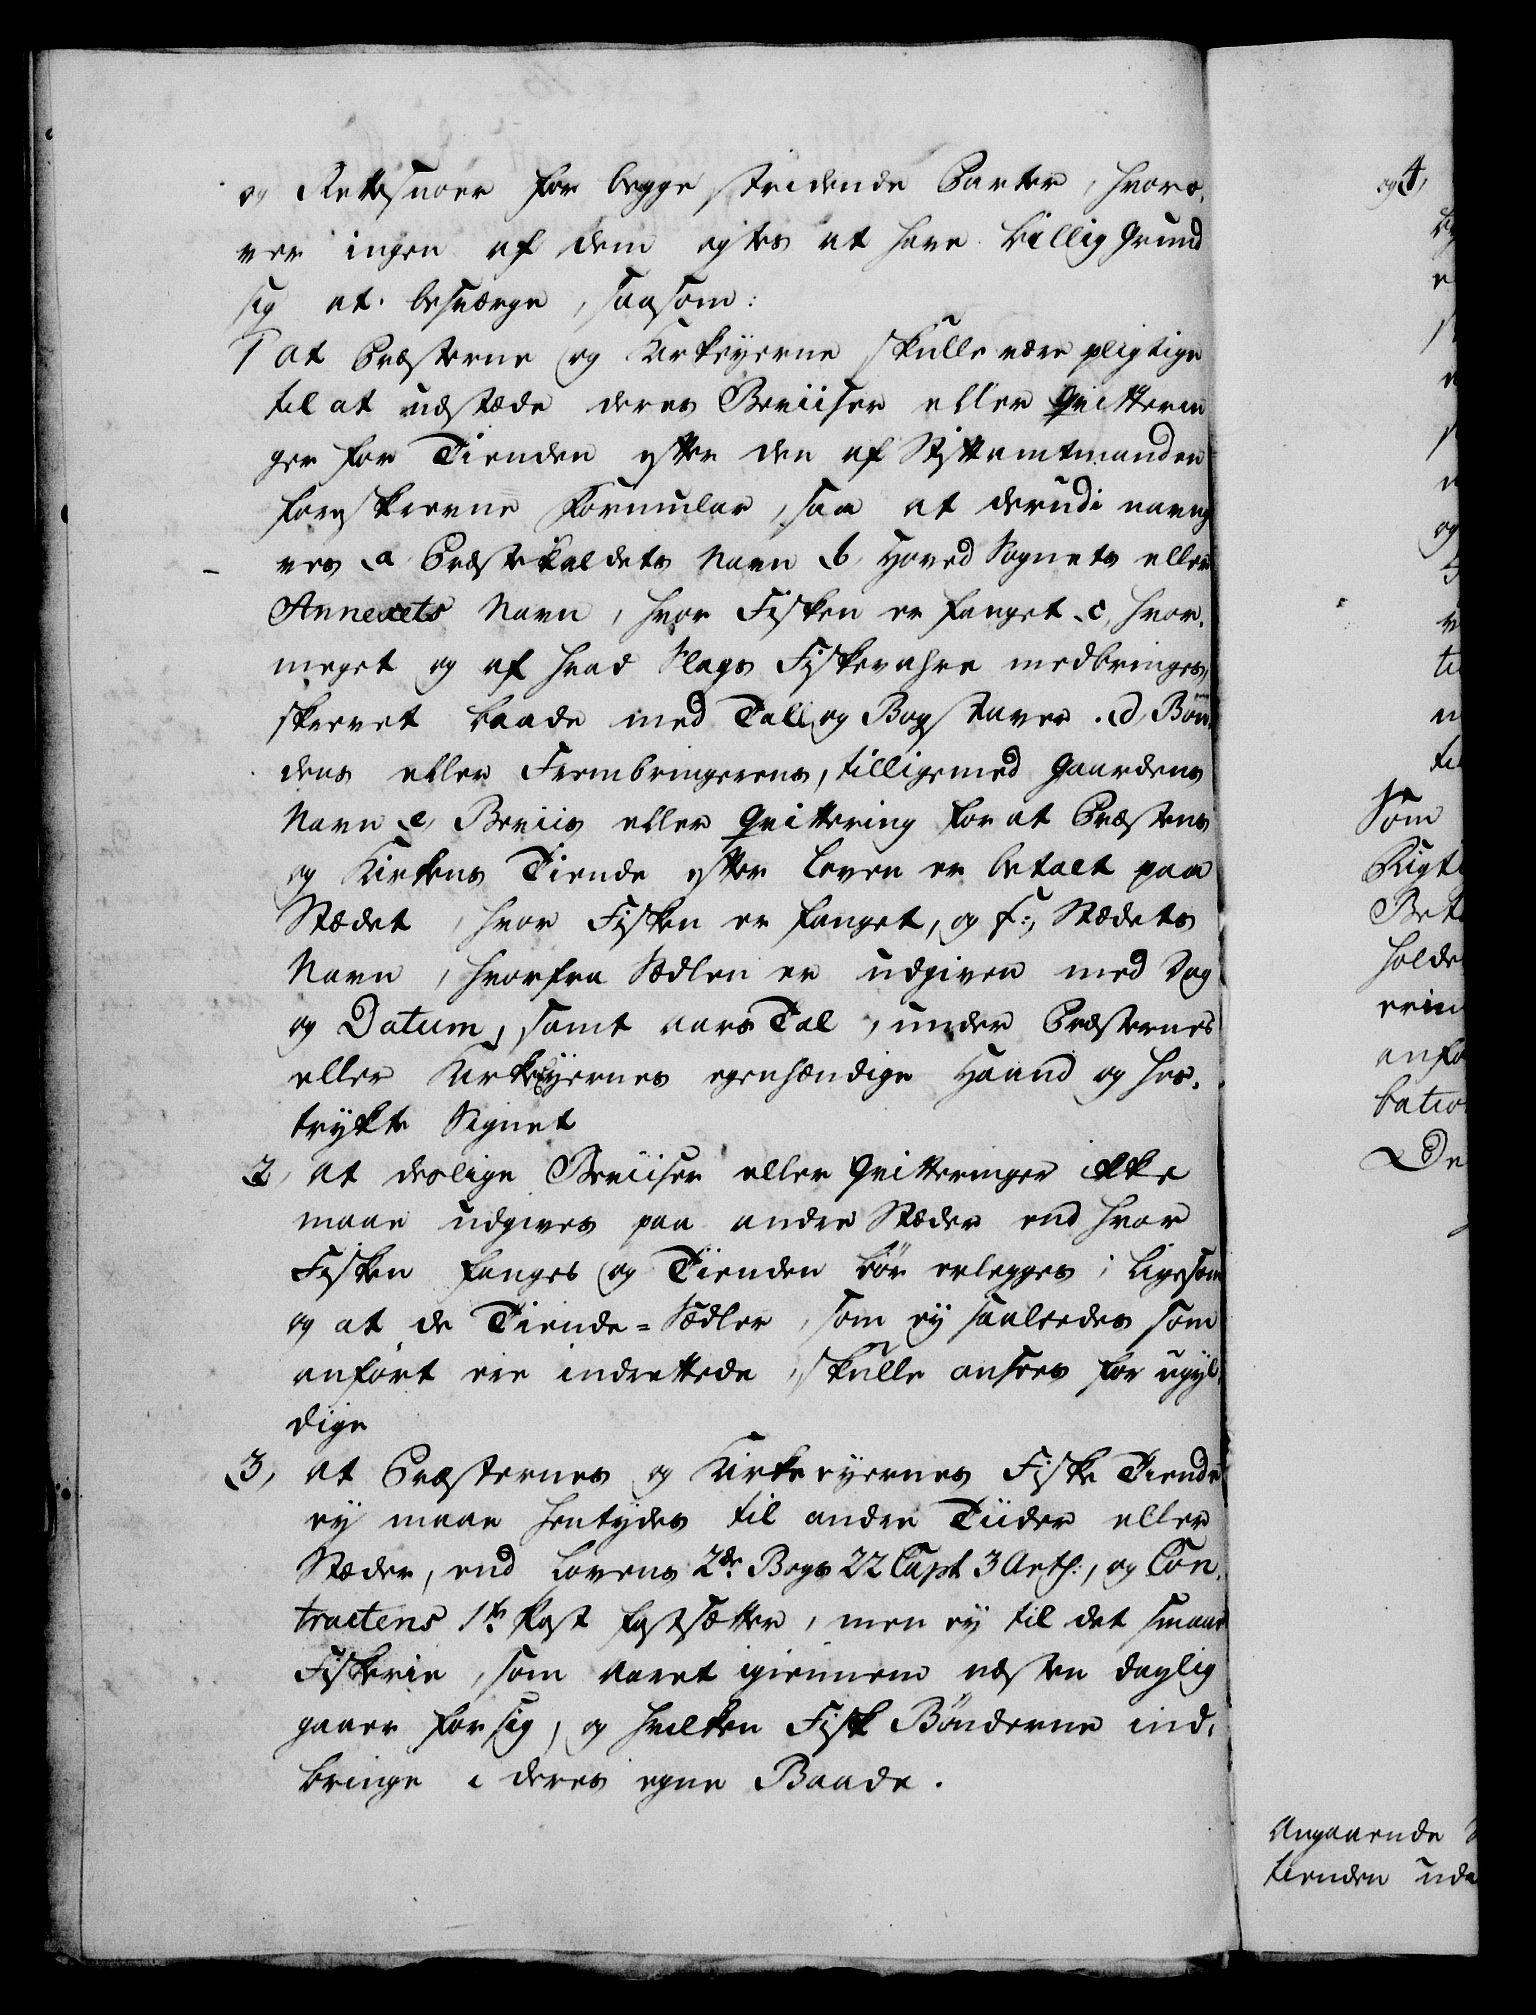 og Rettesnoer for begge stridende Parter, hvoro,
ver ingen af dem agtes at have billig Grund
sig at besværge, saasom:
1 at Præsterne og Kirkeyerne skulle være pligtige
til at udstæde deres Beviiser eller Qvitterin
ger for Tienden efter den af Stiftamtmanden
foreskrevne Formular, saa at derudi navng
ves a, Præstekaldets Navn b, Hoved Sognets eller
Annexets Navn, hvor Fisken er fanget c, hvor,
meget og af hvad Slags Fiskevahre medbringes,
skrevet baade med Tall og Bogstaver. d, Bøn,
dens eller Frembringerens, tilligemed Gaardens
Navn e, Beviis eller Qvittering for at Præstens
og Kirkens Tiende efter Loven er betalt paa
Stædet, hvor Fisken er fanget, og f:, Stædets
Navn, hvorfra Sædlen er udgiven med Dag
og Datum, samt aars Tal, under Præsternes
eller Kirkeyernes egenhændige Haand og hos,
trykte Signet
2, at deslige Beviiser eller Qvitteringer ikke
maae udgives paa andre Stæder end hvor
Fisken fanges og Tienden bør erlegges; ligesom
og at de Tiende=Sædler, som ey saaledes som
anført ere indrettede, skulle ansees for ugyl,
dige
3, at Præsternes og Kirke eyernes Fiske Tiende
ey maae hentydes til andre Tiider eller
Stæder, end Lovens 2de Bogs 22 Capt 3 Arth:, og Con,
tractens 1te Post fastsætter, men ey til det smaae
Fiskerie, som aaret igiennem næsten daglig
gaaer for sig, og hvilken Fisk Bønderne ind,
bringe i deres egne Baade.
og 4,
Som
holde
Angaaende
tienden uda